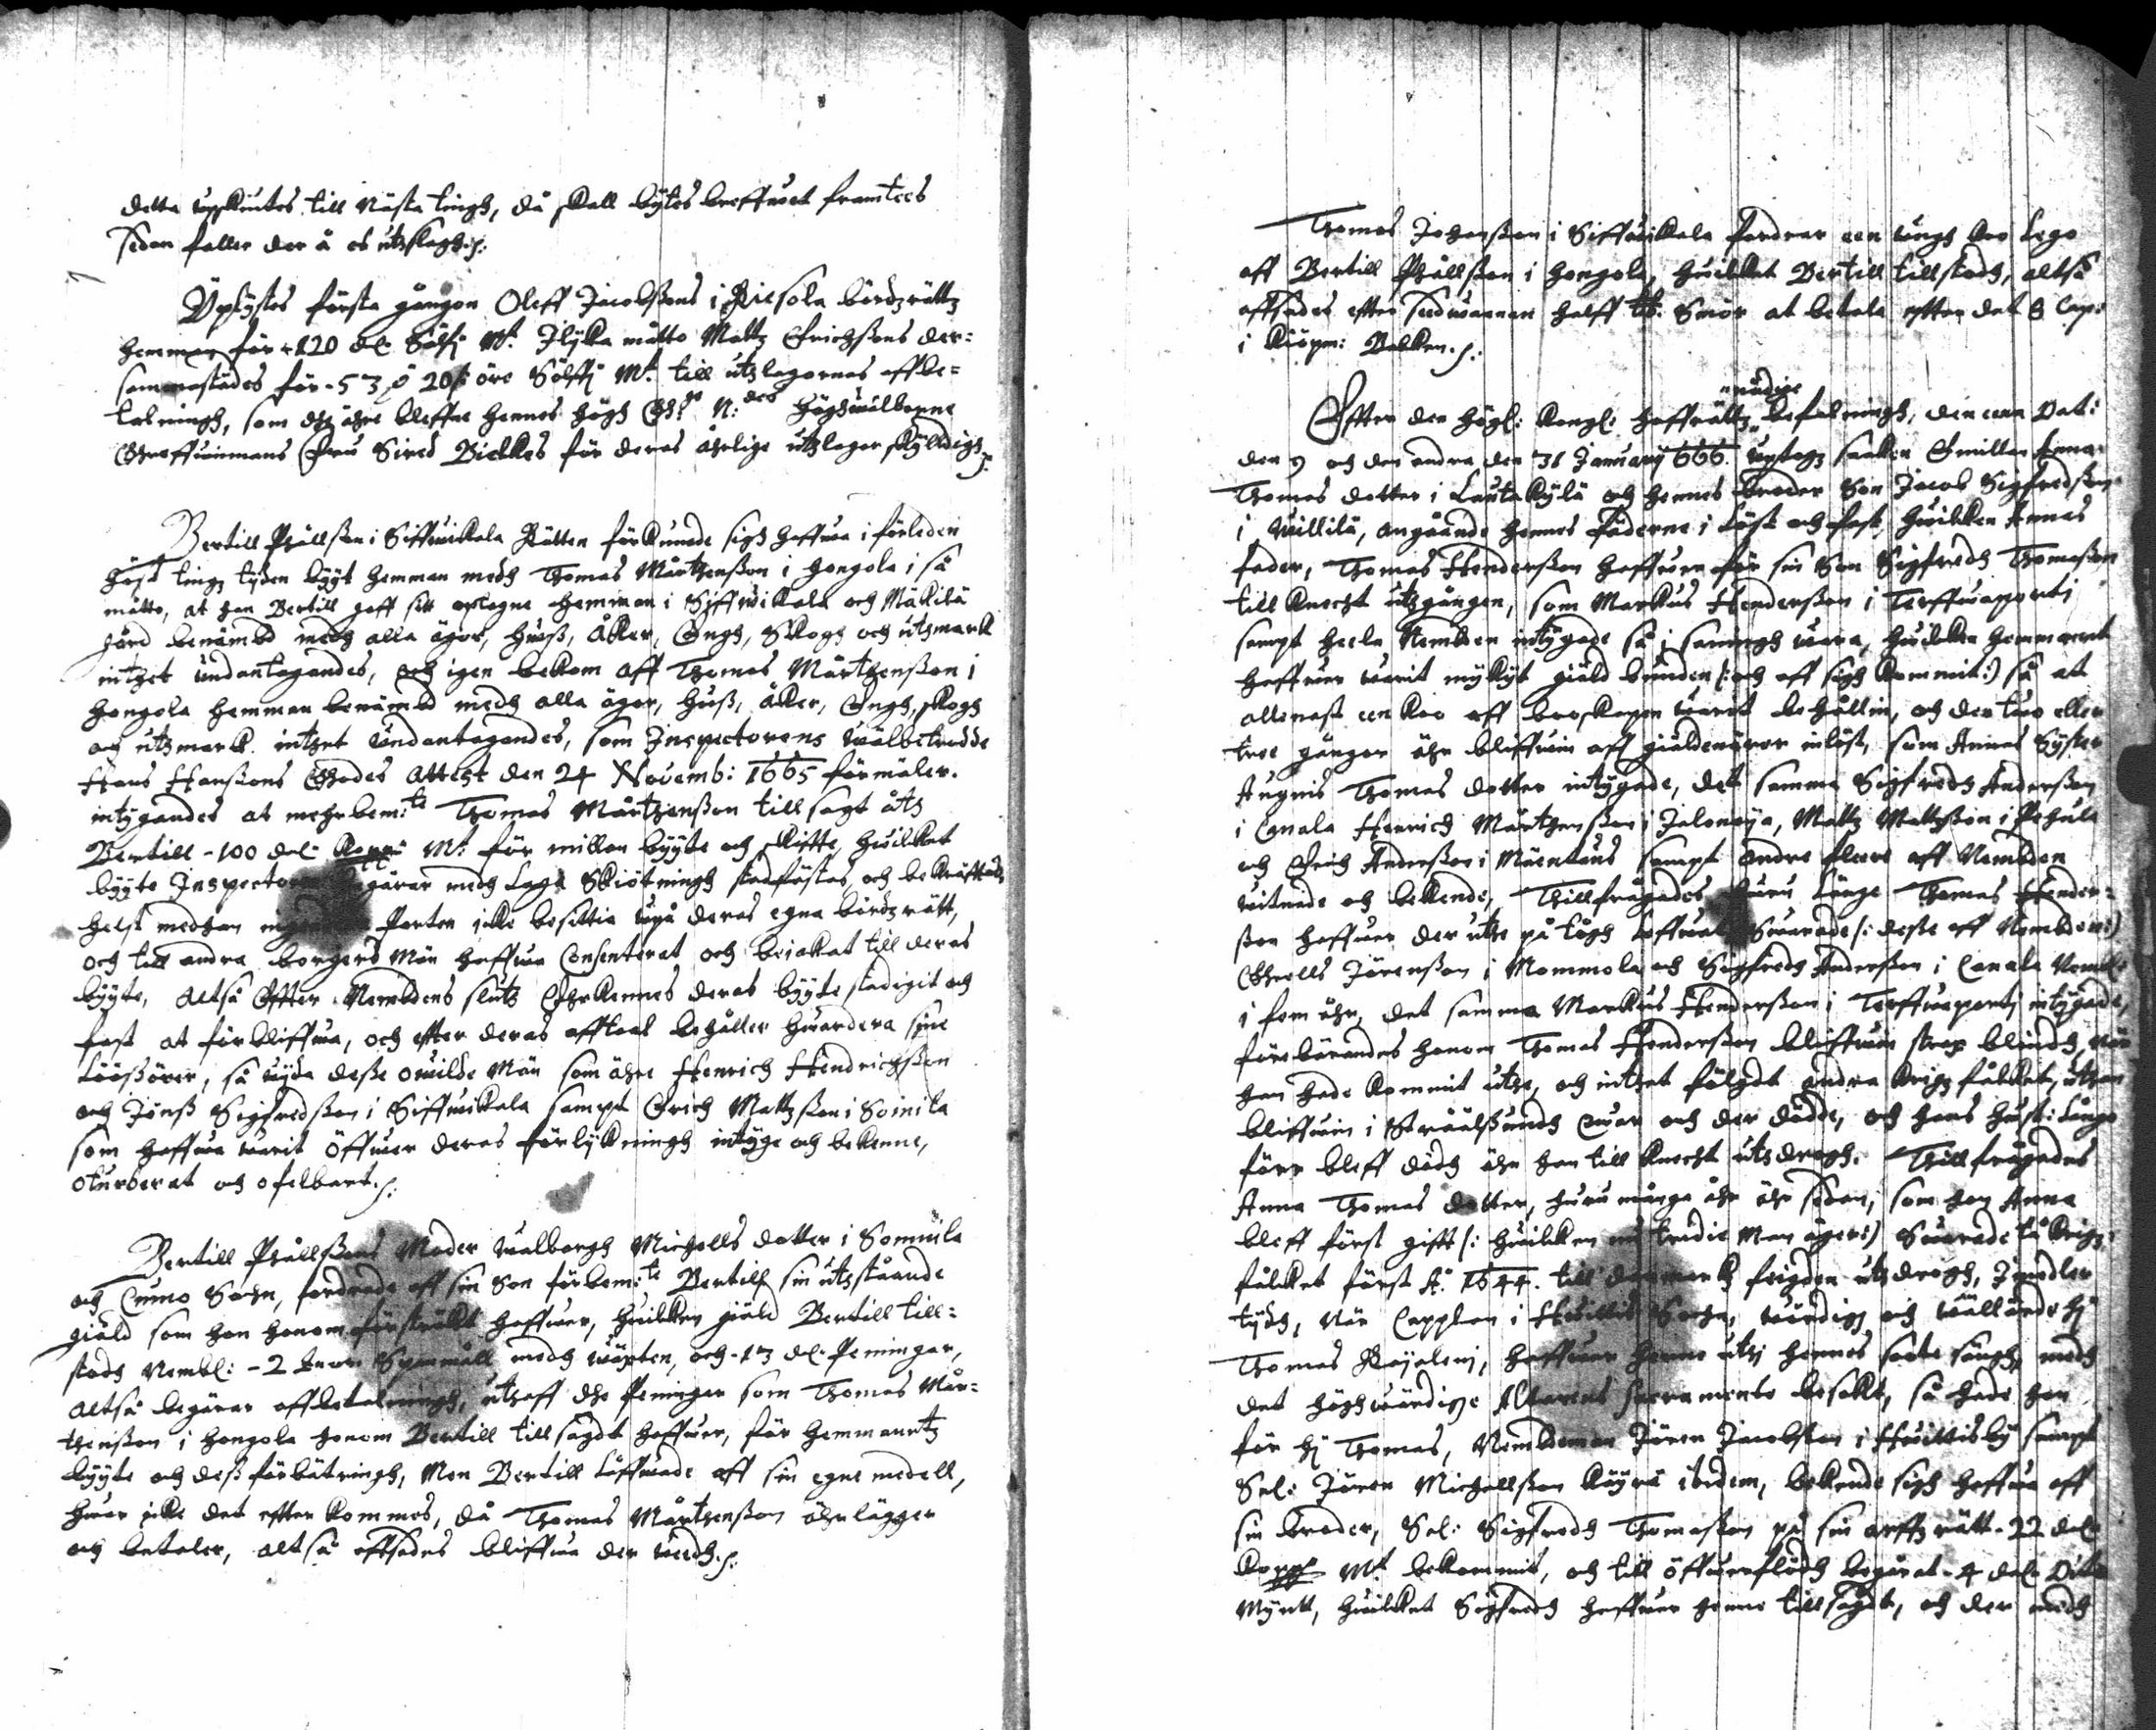 detta uppskiutes till nästa tingh, då skall bytes breffwet framtees
sedan faller der å et uthslagh./.
Uplystes första gången Oleff Jacobssons i Riesola bördzrättz
hemman för -120 dl: Sölff Mt. Jlijka måtto Mattz Erichssons der-
sammastädes för -53 20 öre Sölff Mt. till uthlagornas affbe-
talningh, som the ähre bleffne hennes högh Gr: N: des höghwälborne
Greffwinnans Fru Sired Bielkes för deras åhrlige uthlagor skylldigh
Bertill Pålsson i Siffwikala Rätten förkunnade sigh haffwa i förleden
höst tingz tijden bytt hemman medh Thomas Mårthensson i Hongola i så
måtto, at han Bertill gaff sitt hemman i Siffwikala och Mäkilä
gård benämbd medh alla ägor, huuss, åker, Engh, Skogh och uthmark
inthet undantagandes, och igen bekom aff Thomas Mårthensson i
Hongola hemman benämbd medh alla ägor, huss, åker, Engh, skogh
och uthmark inthet undantagandes, som Inspectorens wälbetrodde
Hans Hanssons Gkodes Attest den 24 Novemb: 1665 förmäler.
intygandes at mehrbem:te Thomas Mårthensson till sagt åth
Bertill -100 dal: Kopp: Mt: för millan byte och skiffte, huilket
byte Inspectoren begärar medh Lagh Skiötningh stadfästas, och bekräfftas
helst medhan Parten icke besittia upå deras egna bördz rätt,
och till andra borgers Män haffwa Consenterat och beiakat till deras
byte, altså Effter Nembdens sluth Ehrkennes deras byte stadigt och
fast at förbliffwa, och efter deras afftaal behåller huardera sine
Löössörer, så wijda desse owilde Män som ähre Henrich Hendrichsson
och Jönss Sigfredsson i Siffwikala sampt Erich Mattzson i Soinila
som haffwa warit öffwer deras förlykningh intyge och bekenne,
oturberat och ofelbart./.
Bertill Pålssons Moder Walborgh Michells dotter i Sommila
och Cumo Sochn, fordrade aff sin Son förbem:te Bertill sin uthstående
giäld som hon honom försträkt haffwer, huilken giäld Bertill till-
stodh Nembl: -2 Spanmåll medh wäxten, och -13 dl: Peningar,
altså begärar affbetalningh, uthaff dhe Peningar som Thomas Mår-
thensson i Hongola honom Bertill till sagdt haffwer, för hemmanetz
byte och dess förbätringh, Men Bertill loffwade aff sin egne medell,
hwar icke det effter kommes, då Thomas Mårthensson åhrlägger
och betaler, altså affsades bliffwa der widh./.
Thomas Johansson i Siffwikala fordrar een ungh koo Lego
aff Bertill Pålsson i Hongola, huilket Bertill tillstodh, altså
affsades effter sedwaanan halff lb: Smör at betala effter det 8 Cap:
i Kiöpm: Balken./.
Effter den Högl: Kongl: Hoffrättz nådige befalningh, den ena Dat:
den 9 och den andra den 31 January 666. uptogz saaken Emillan Anna
Thomas dotter i Lautakylä och hennes broder Son Jacob Sigfredsson
i Willilä, angåande hennes fäderne i löst och fast, huilken Annas
fader, Thomas Hendersson haffwer för sin Son Sigfredh Thomasson
till Knecht uthgången, som Markus Hendersson i Terffwaporti
sampt heela Nembden intygade så i sanningh wara, huilken hemmanet
haffwer warit myckyt giäld bunden (: och aff sigh kommit:) så at
allenast een Koo aff booskapen warit behållin, och den two eller
tree gångor ähr bliffwin aff giäldenärer inlöst, som Annas Syster
Augnis Thomas dotter intygade, det samma Sigfredh Andersson
i Canala Henrich Mårthensson i Jalonoja, Mattz Mattzson i Pehula
och Erich Andersson i Mäentaus sampt andre flere aff Nembden
witnade och bekende, Tillfrågades huru Länge Thomas Hender-
son haffwer der uthe på togh Swarade (: desse aff Nembden:)
Grells Jörensson i Mommola och Sigfredh Andersson i Canala Nembl:
i fem åhr, det samma Markus Hendersson i Terffwaporti intygade,
förebärandes honom Thomas Hendersson bliffwin strax blindh, när
han hade kommit uthe, och inthet fölgdt andra krigz fålket, uthan
bliffwin i Stråålssundh Cwar och der dödde, och hans hust: Långo
förr bleff dödh ähn han till Knecht uthdrogh. Till frågades
Anna Thomas dotter, huru många åhr ähr sedan, som hon Anna
bleff först gifft (: huilken nu tredie Man äger:) Swarade tå krigz-
fålket först Ao: 1644. till danmarkz feigden uth drogh, Jmedler
tijdh, när Capplan i Huittis Sochn, wördigh och wällärde Hr
Thomas Rajalenj, haffwer henne uthj hennes soote sängh, medh
det höghwärdige Altarens sacramente besökt, så hade hon
för Hr Thomas, Nembdeman Jören Jacobsson i Huittisby sampt
Sal: Jören Michellsson Käyrä ibidem, bekende sigh haffwa aff
sin broder, Sal: Sigfredh Thomasson på sin arffz rätt -22 dal:
Kopp: Mt bekommit, och till öffwerflödh begärat -4 dal: Dito
Mynt, huilket Sigfredh haffwer henne till sagdt, och der medh